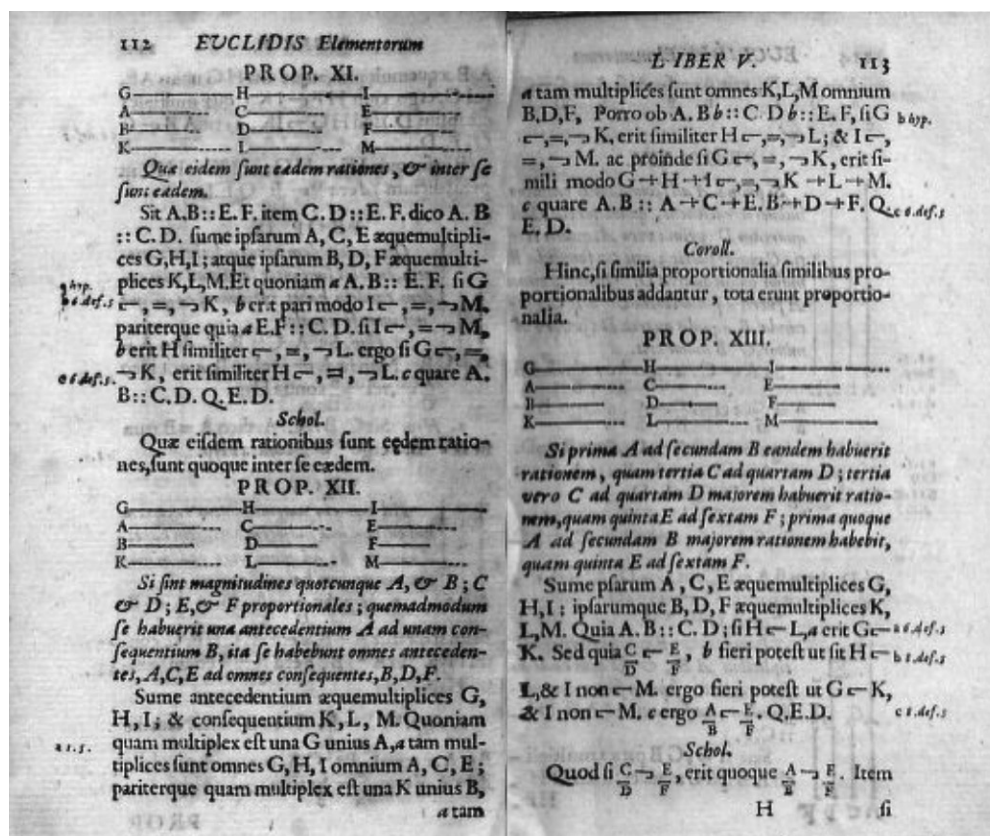 112 EUCLIDIS Elementorum
PROP. XI.
G H I
A C E
B D F
K L M
Quæ eidem sunt eædem rationes, & inter se
sunt eædem.
Sit A.B :: E.F. item C.D :: E.F. dico A. B
:: C.D. sume ipsarum A, C, E æquemultipli-
ces G,H,I; atque ipsarum B, D, F æquemulti-
plices K,L,M. Et quoniam a A.B :: E.F. si G
a hyp.
b 6.def.5
⊏, =, ⊐ K, b erit pari modo I ⊏, =, ⊐ M,
pariterque quia a E.F :: C.D. si I ⊏, = ⊐ M,
b erit H similiter ⊏, =, ⊐ L. ergo si G ⊏, =,
c 6.def.5.
⊐ K, erit similiter H ⊏, =, ⊐ L. c quare A.
B :: C.D. Q.E.D.
Schol.
Quæ eisdem rationibus sunt eędem ratio-
nes, sunt quoque inter se eædem.
PROP. XII.
G H I
A C E
B D F
K L M
Si sint magnitudines quotcunque A, & B; C
& D; E, & F proportionales; quemadmodum
se habuerit una antecedentium A ad unam con-
sequentium B, ita se habebunt omnes anteceden-
tes, A,C,E ad omnes consequentes, B,D,F.
Sume antecedentium æquemultiplices G,
H, I; & consequentium K, L, M. Quoniam
a 1.5.
quam multiplex est una G unius A, a tam mul-
tiplices sunt omnes G, H, I omnium A, C, E;
pariterque quam multiplex est una K unius B,
a tam
LIBER V. 113
a tam multiplices sunt omnes K,L,M omnium
B,D,F, Porro ob A. B b :: C. D b :: E. F, si G
b hyp.
⊏, =, ⊐ K, erit similiter H ⊏, =, ⊐ L; & I ⊏,
=, ⊐ M. ac proinde si G ⊏, =, ⊐ K, erit si-
mili modo G + H + I ⊏, =, ⊐ K + L + M.
c quare A. B :: A + C + E. B + D + F. Q.
c 6.def.5
E. D.
Coroll.
Hinc, si similia proportionalia similibus pro-
portionalibus addantur, tota erunt proportio-
nalia.
PROP. XIII.
G H I
A C E
B D F
K L M
Si prima A ad secundam B eandem habuerit
rationem, quam tertia C ad quartam D; tertia
vero C ad quartam D majorem habuerit ratio-
nem, quam quinta E ad sextam F; prima quoque
A ad secundam B majorem rationem habebit,
quam quinta E ad sextam F.
Sume psarum A, C, E æquemultiplices G,
H, I; ipsarumque B, D, F æquemultiplices K,
L, M. Quia A. B :: C. D; si H ⊏ L, a erit G ⊏
a 6.def.5
K. Sed quia C/D ⊏ E/F, b fieri potest ut sit H ⊏
b 8.def.5
L, & I non ⊏ M. ergo fieri potest ut G ⊏ K,
& I non ⊏ M. c ergo A/B ⊏ E/F. Q.E.D.
c 8.def.5
Schol.
Quod si C/D ⊐ E/F, erit quoque A/B ⊐ E/F. Item
H si